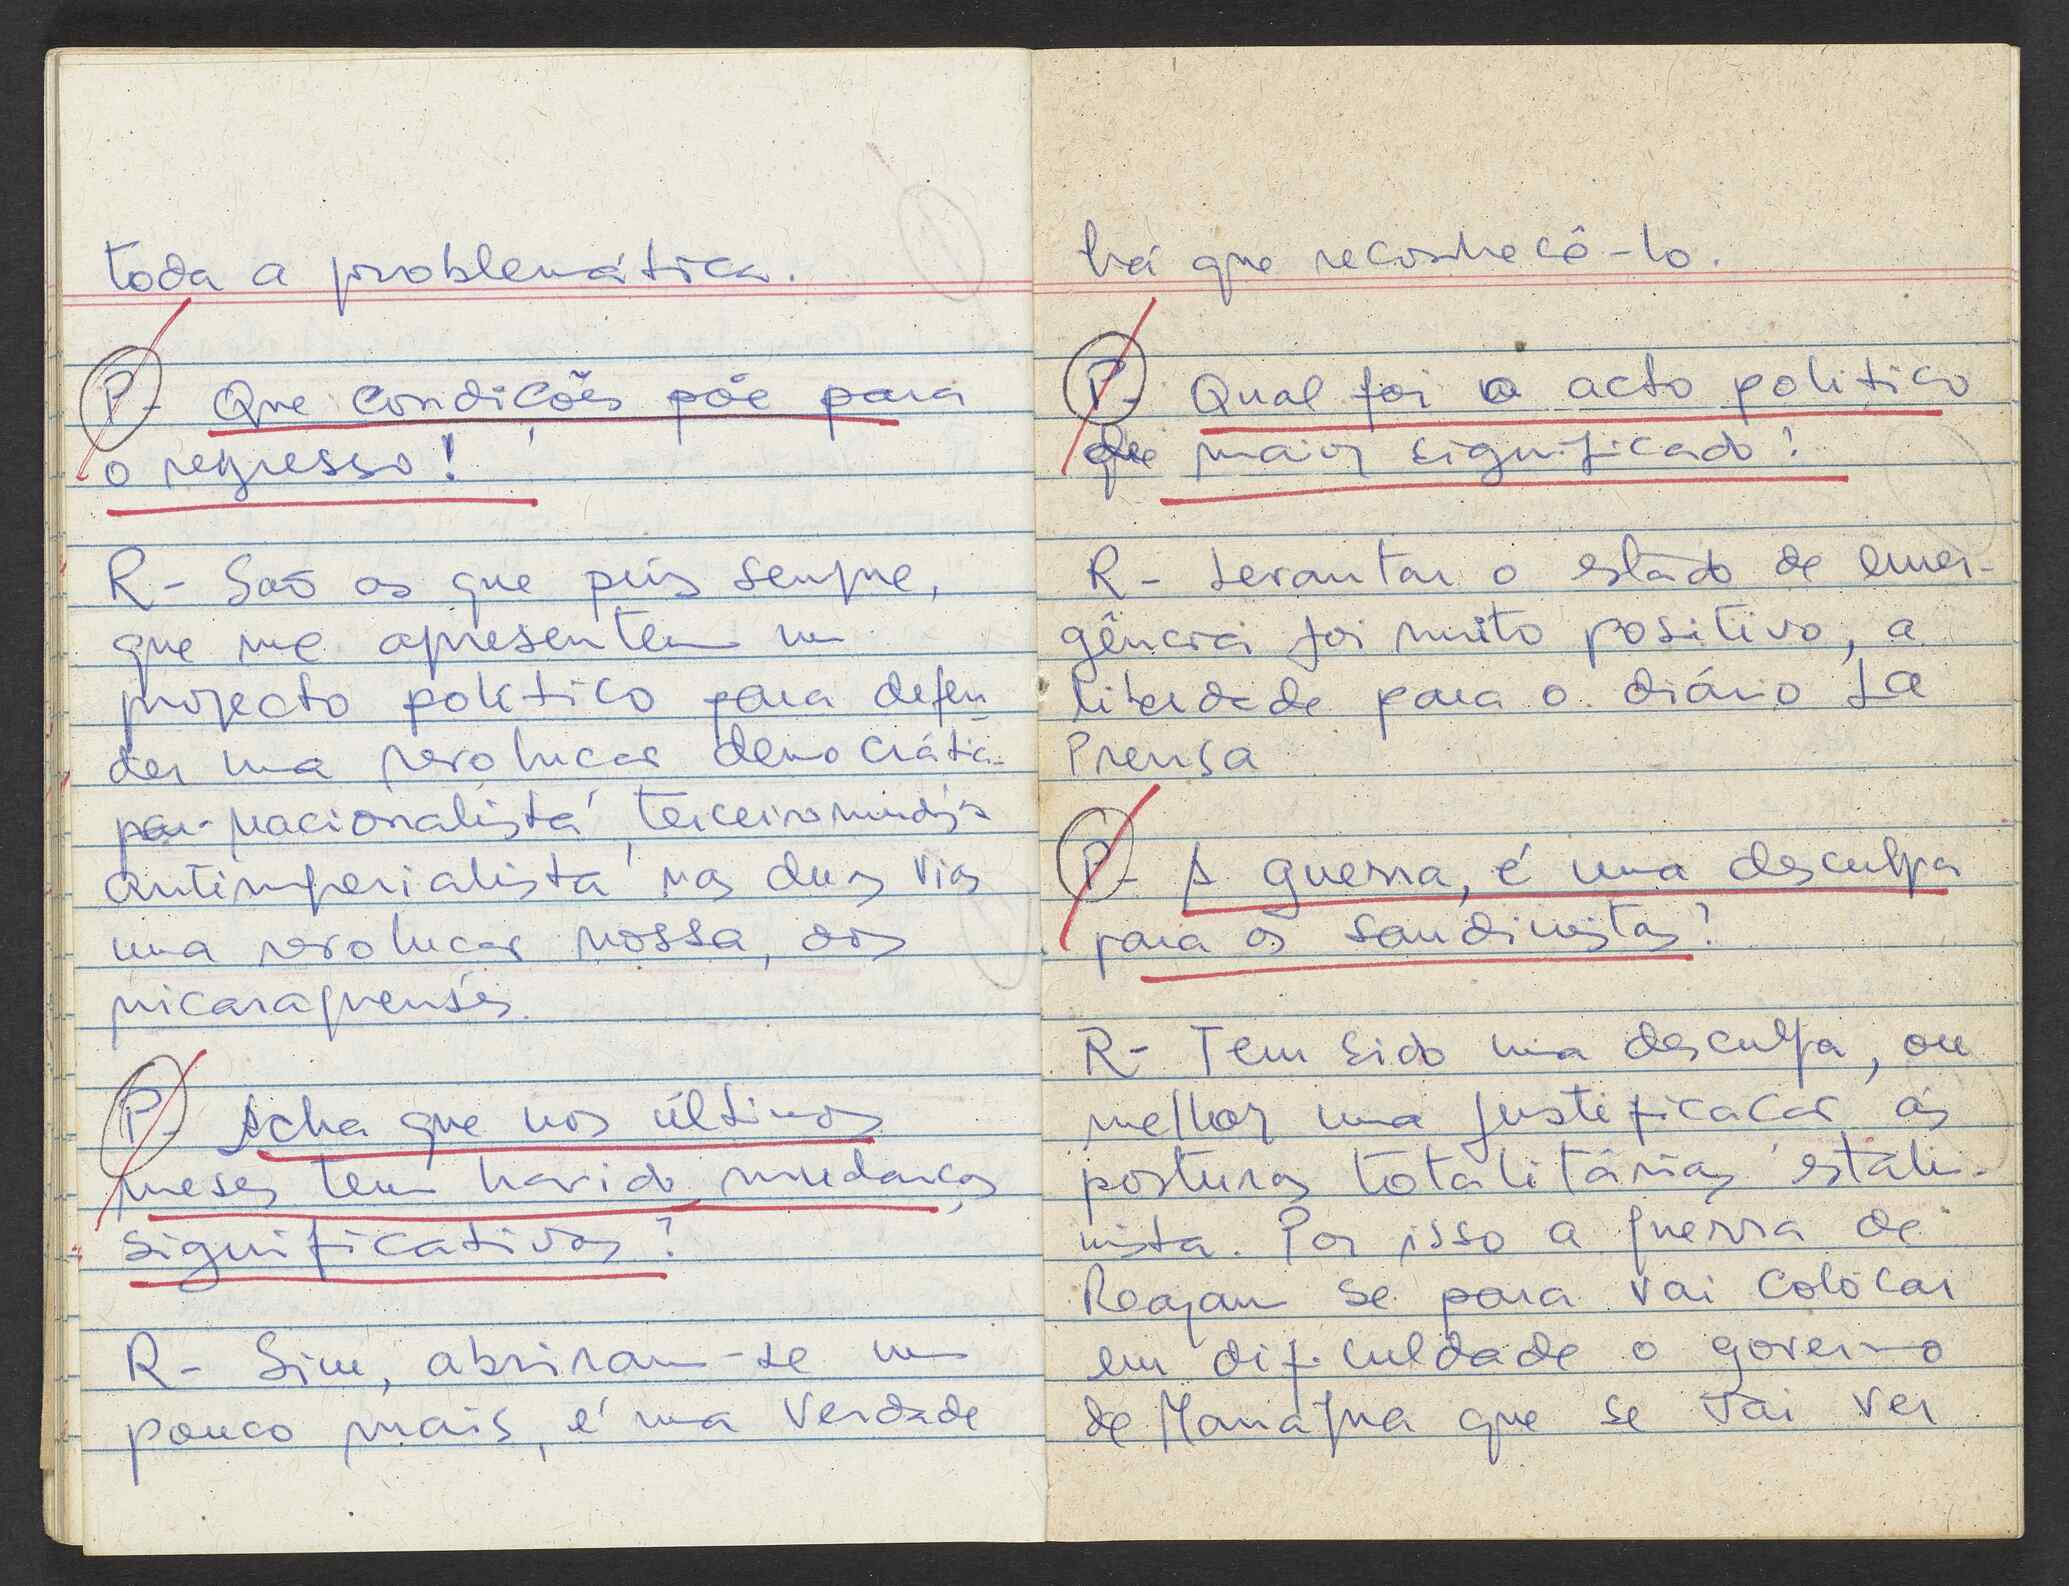 toda a problemática.
P- Que condições põe para
o regresso!
R- Saõ as que pus sempre,
que me apresentem um
projecto politico para defen
der uma revolucao democrática-
nacionalista, terceiromundista
antimperialista nas duas vias
uma revolucao nossa, dos
nicaraguenses.
P- Acha que nos últimos
meses tem havido mudanças
significativas?
R- Sim, abriram-se um
pouco mais, é uma verdade
há que reconhecê-lo.
P- Qual foi o acto politico
de maior significado?
R- Levantar o estado de emer-
gência foi muito positivo, a
liberdade para o diário La
Prensa
P- A guerra, é uma desculpa
para os sandinistas?
R- Tem sido uma desculpa, ou
melhor uma justificacao ás
posturas totalitárias estali-
nista. Por isso a guerra de
Reagan se para vai colocar
em dificuldade o governo
de Managua que se vai ver